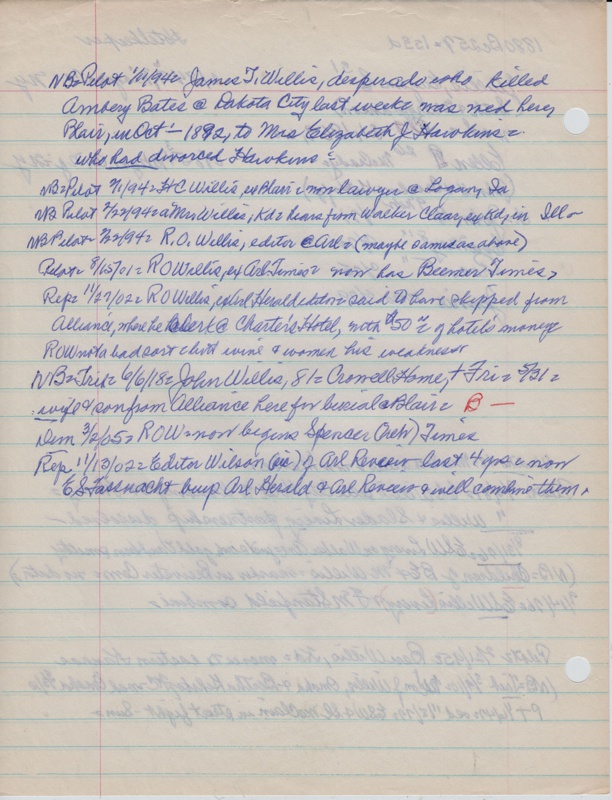 NB=Pilot 1/11/94= James T. Willis, desperado who killed
Ambery Bates @ Dakota City last week= was med here,
Blair, in Oct - 1892, to Mrs Elizabeth J. Hawkins=
who had divorced Hawkins=
NB=Pilot 2/1/94= HC Willis, ex Blair= now lawyer @ Logan, Ia
NB Pilot 2/22/94= a Mrs. Willis, Kd= hears from Walker Claar, ex Kd, in Ill=
NB Pilot= 2/22/94= R.O. Willis, editor @ Arl= (maybe same as above)
Pilot= 8/15/01= R O Willis, ex Arl Times= now has Beemer Times,
Rep= 11/27/02= R O Willis, ex Arl Herald editor= said to have skipped from
Alliance, where he clerk @ Charter's Hotel, with $50 of hotel's money
ROW not a bad sort but wine & women his weakness
NB=Trib= 6/6/18= John Willis, 81= Crowell Home, + Fri= 5/31=
wife & son from Alliance here for burial @ Blair= B —
Dem 3/2/05= ROW= now begins Spencer (Neb) Times
Rep= 11/13/02= Editor Wilson (sic) of Arl Review last 4 yrs= now
E.S. Fassnacht buys Arl Herald & Arl Review & will combine them,